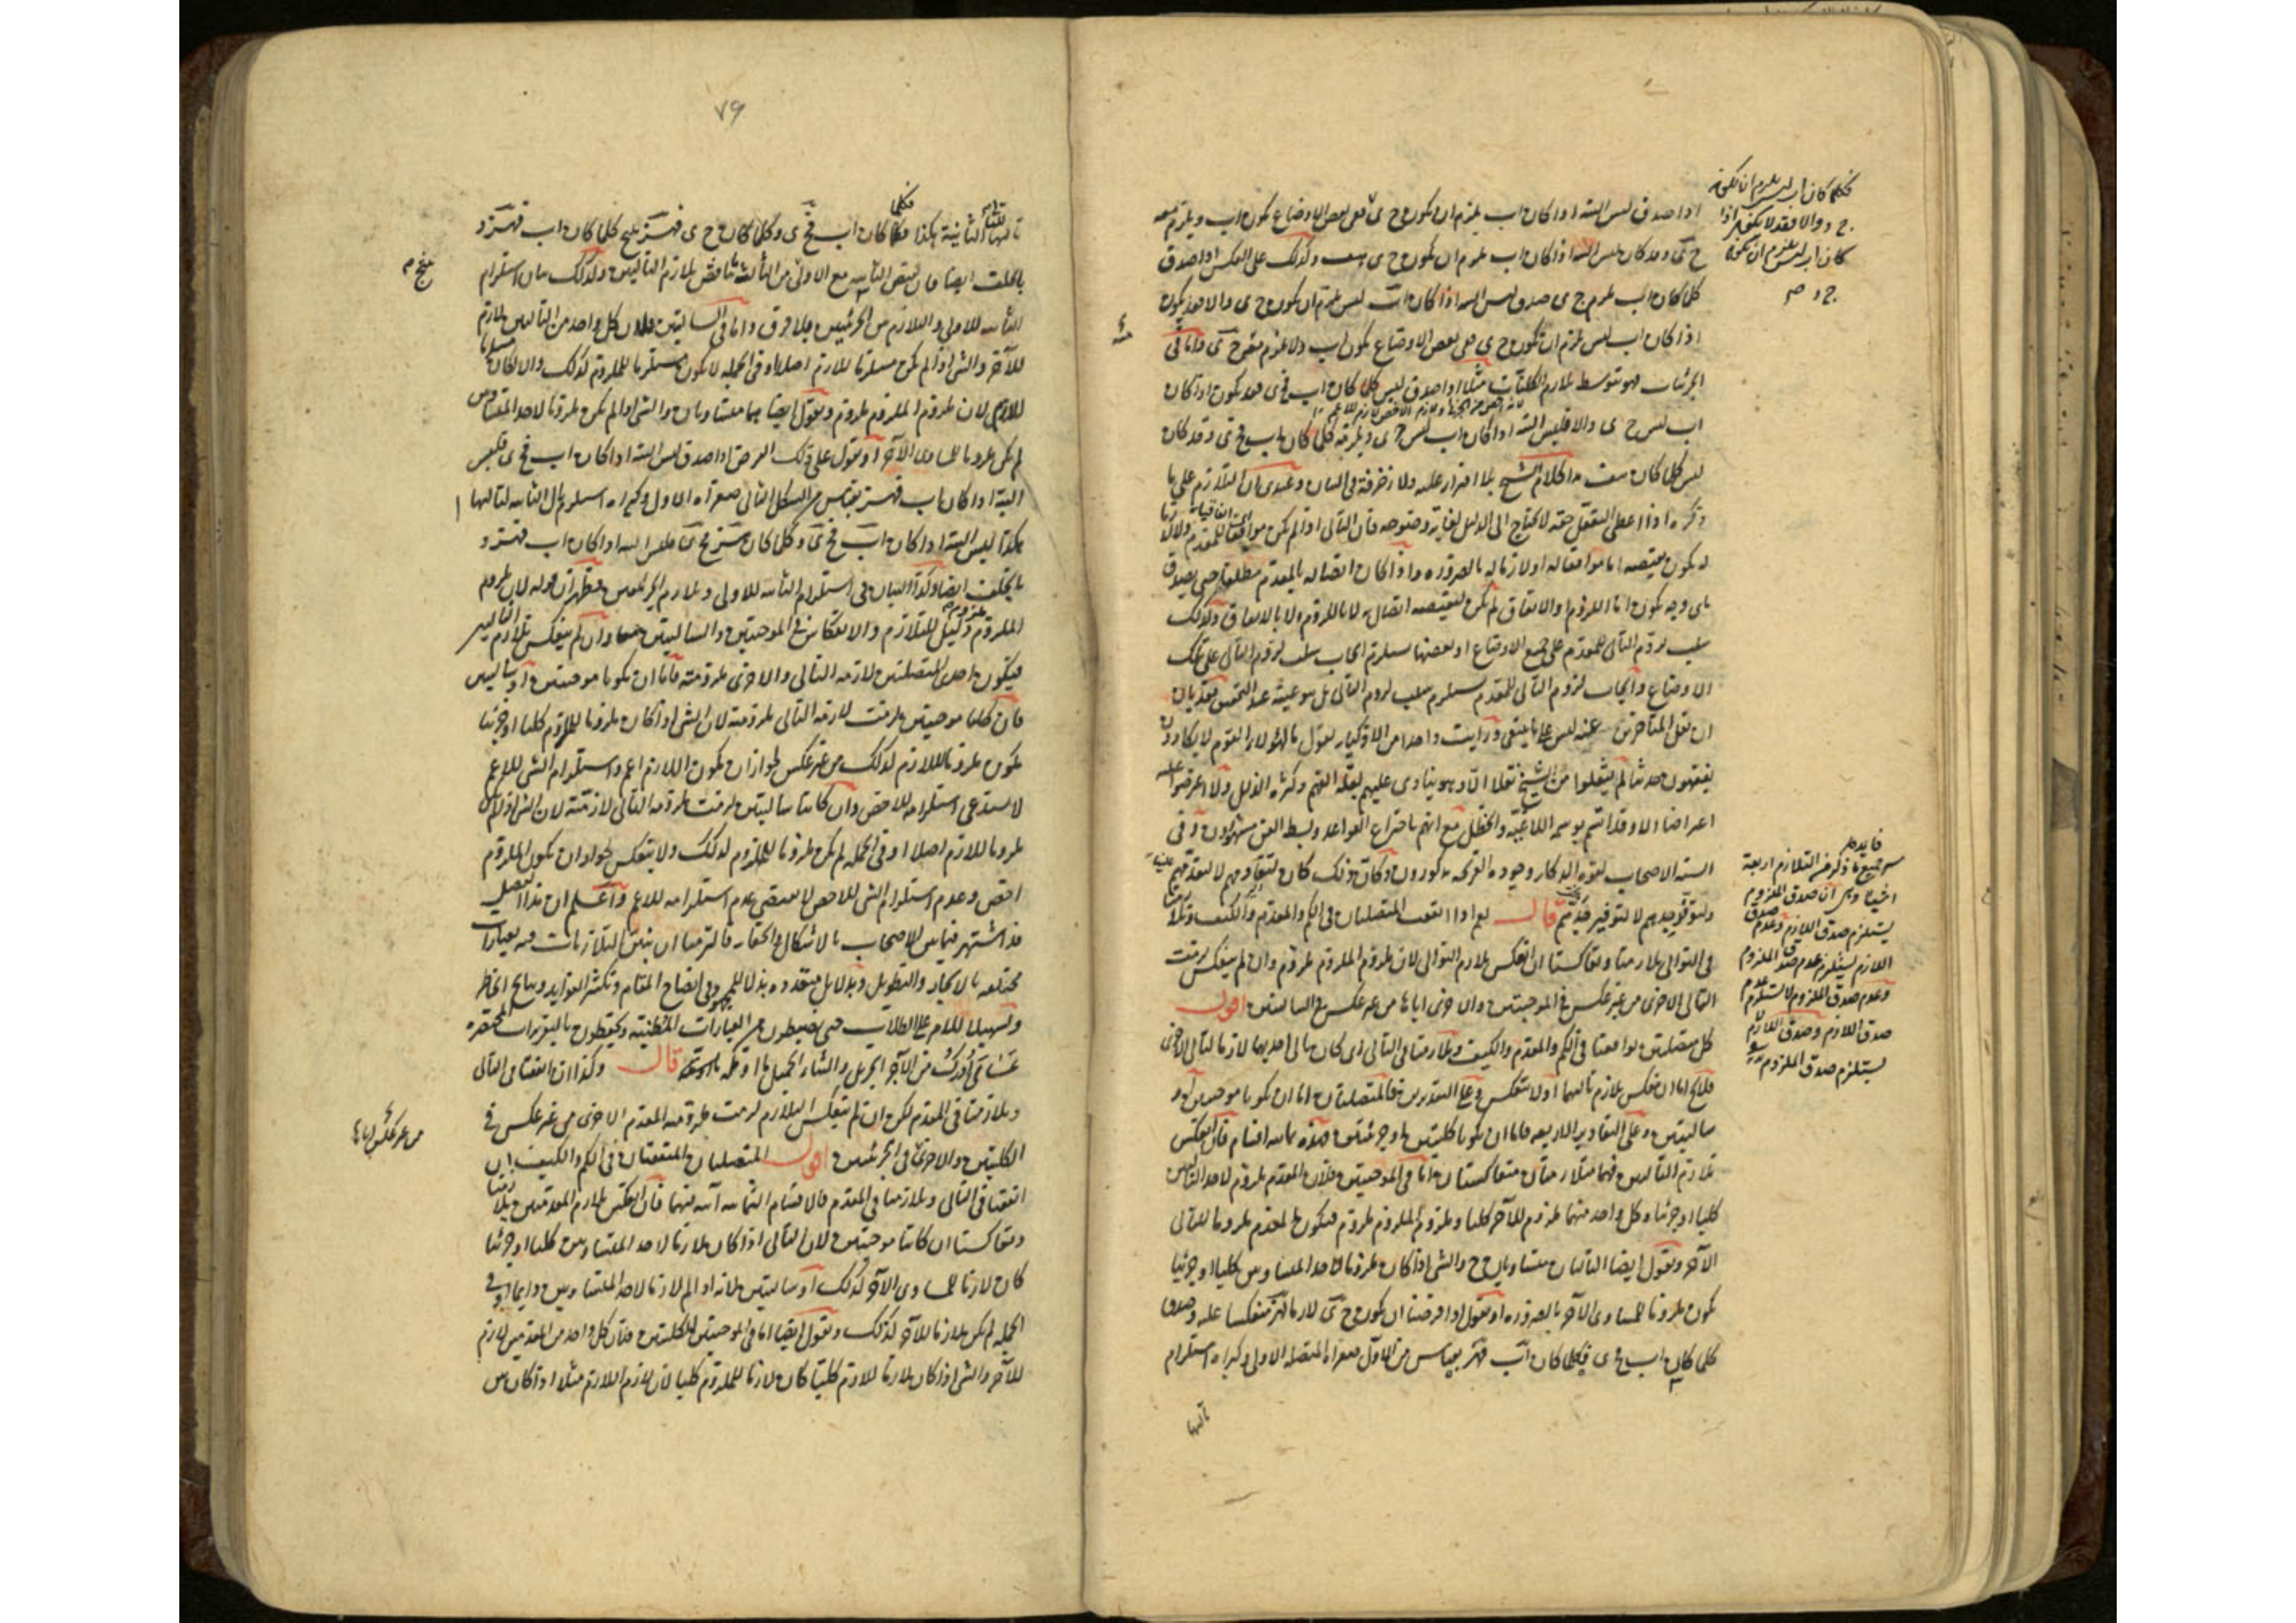 اذا صدق ليس البتة اذا كان اب يلزم ان يكون ج ى ففى بعض الاوضاع يكون اب ويلزم معه
ج ى وقد كان ليس البتة اذا كان اب يلزم ان يكون ج ى وكذلك على العكس اذا صدق
كلما كان اب يلزم ج ى صدق ليس البتة اذا كان اب ليس يلزم ان يكون ج ى والا فقد يكون
اذا كان اب ليس يلزم ان يكون ج ى ففى بعض الاوضاع يكون اب ولا يلزم معه ج ى واما فى
الجزئيات فهو بتوسط تلازم الكليات مثلا اذا صدق ليس كلما كان اب فج ى فقد يكون اذا كان
اب ليس ج ى والا فليس البتة اذا كان اب ليس ج ى ويلزمه كلما كان اب فج ى وقد كان
ليس كلما كان هذا كلام الشيخ بلا افتراء عليه ولا زخرفة فى البيان وعندى ان التلازم على ما
ذكره اذا اعطى التعقل حقه لا يحتاج الى الدليل لغاية وضوحه فان التالى اذا لم يكن موافقا للمقدم
يكون نقيضه اما موافقا له او لازما له بالضرورة واذا كان اتصاله بالمقدم مطلقا حتى يصدق
باى وجه يكون اما اللزوم او الاتفاق لم يكن لنقيضه اتصال به لا باللزوم ولا بالاتفاق وكذلك
سلب لزوم التالى للمقدم على جميع الاوضاع او بعضها يستلزم ايجاب سلب لزوم التالى على تلك
الاوضاع وايجاب لزوم التالى للمقدم يستلزم سلب لزوم التالى بل هو عينه عند التحقيق
ان نقل المتاخرين عنه ليس على ما ينبغى ورايت واحدا من الاذكياء يقول ما لهؤلاء القوم لا يكادون
يفقهون حديثا لم ينقلوا من الشيخ نقلا الا وهو ينادى عليهم بقلة الفهم وكثرة الزلل ولا اعترضوا عليه
اعتراضا الا وقد اتسم بوسمة والخطل مع انهم باختراع القواعد وبسط الفن مشهورون وفى
السنة الاصحاب بقوة الذكاء وجودة القريحة مذكورون وكان ذلك
قال نعم اذا اتفقت المتصلتان فى الكم والمقدم والكيف وتلازمتا
فى التوالى تلازمتا وتعاكستا ان انعكس تلازم التوالى لان ملزوم الملزوم ملزوم وان لم ينعكس لزمت
التالى الاخرى من غير عكس فى الموجبتين والاخرى اياها من غير عكس فى السالبتين اقول
كل متصلتين توافقتا فى الكم والمقدم والكيف وتلازمتا فى التالى اى كان تالى احديهما لازما لتالى الاخرى
فلا يخ اما ان ينعكس تلازم تاليهما او لا ينعكس وعلى التقديرين فالمتصلتان اما ان يكونا موجبتين او
سالبتين وعلى التقادير الاربعة فاما ان يكونا كليتين او جزئيتين فهذه ثمانية اقسام فان انعكس
تلازم التاليين فهما متلازمتان متعاكستان اما فى الموجبتين فلان المقدم ملزوم لاحد التاليين
كليا او جزئيا وكل واحد منهما ملزوم للآخر كليا وملزوم الملزوم ملزوم فيكون المقدم ملزوما للتالى
الآخر ونقول ايضا التاليان متساويان ح والشى اذا كان ملزوما لاحد المتساويين كليا او جزئيا
يكون ملزوما للمساوى الآخر بالضرورة او نقول اذا فرضنا ان يكون ج ى لازما لهز منعكسا عليه وصدق
كلما كان اب فج ى فكلما كان اب فهز بقياس من الاول صغراه المتصلة الاولى وكبراه استلزام
تاليها
فكلما كان اب ليس يلزم ان يكون
ج د والا فقد لا يكون اذا
كان اب ليس يلزم ان يكون
ج د
فايدة
جميع ما ذكر فى التلازم اربعة
اشياء وهى ان صدق الملزوم
يستلزم صدق اللازم وعدم صدق
اللازم يستلزم عدم صدق الملزوم
وعدم صدق الملزوم لا يستلزم عدم
صدق اللازم وصدق اللازم لا
يستلزم صدق الملزوم
٧٩
تاليها الثانية هكذا فكلما كان اب فج ى وكلما كان ج ى فهز ينتج كلما كان اب فهز و
بالخلف ايضا فان نقيض الثانية مع الاولى من الثالث يناقض تلازم التاليين وكذلك بيان استلزام
الثانية للاولى والتلازم بين الجزئيتين بلا فرق واما فى السالبتين فلان كل واحد من التاليين لازم
للآخر والشى اذا لم يكن مستلزما للازم اصلا او فى الجملة لا يكون مستلزما للملزوم كذلك والا لكان مستلزما
للازم لان ملزوم الملزوم ملزوم ونقول ايضا هما متساويان والشى اذا لم يكن ملزوما لاحد المتساويين
لم يكن ملزوما للمساوى الآخر او نقول على ذلك الفرض اذا صدق ليس البتة اذا كان اب فج ى فليس
البتة اذا كان اب فهز بقياس من الشكل الثانى صغراه الاولى وكبراه استلزام تالى الثانية لتاليها
هكذا ليس البتة اذا كان اب فج ى وكلما كان هز فج ى فليس البتة اذا كان اب فهز و
بالخلف ايضا وكذا البيان فى استلزام الثانية للاولى وتلازم الجزئيتين فظهر ان قوله لان ملزوم
الملزوم ملزوم دليل للتلازم والانعكاس فى الموجبتين والسالبتين معا وان لم ينعكس تلازم التاليين
فيكون احدى المتصلتين لازمة التالى والاخرى ملزومته فاما ان يكونا موجبتين او سالبتين
فان كانتا موجبتين لزمت لازمة التالى ملزومته لان الشى اذا كان ملزوما للملزوم كليا او جزئيا
يكون ملزوما للازم كذلك من غير عكس لجواز ان يكون اللازم اعم واستلزام الشى للاعم
لا يستدعى استلزامه للاخص وان كانتا سالبتين لزمت ملزومة التالى لازمته لان الشى اذا لم يكن
ملزوما للازم اصلا او فى الجملة لم يكن ملزوما للملزوم كذلك ولا ينعكس لجواز ان يكون الملزوم
اخص وعدم استلزام الشى للاخص لا يقتضى عدم استلزامه للاعم واعلم ان هذا الفصل
قد اشتهر فيما بين الاصحاب بالاشكال فالتزمنا ان نبين التلازمات فيه بعبارات
مختلفة بالايجاز والتطويل وبدلايل متعددة بذلا للجهد فى ايضاح المقام وتكثير الفوايد
وتسهيلا للامر على الطلاب حتى يضبطون
عسانى ادرك من الاجر الجزيل والثناء الجميل قال وكذا ان اتفقتا فى التالى
وتلازمتا فى المقدم لكن ان لم ينعكس التلازم لزمت ملزومة المقدم الاخرى من غير عكس فى
الكليتين والاخرى فى الجزئيتين اقول المتصلتان المتفقتان فى الكم والكيف ان
اتفقتا فى التالى وتلازمتا فى المقدم فالاقسام الثمانية آتية فيهما فان انعكس تلازم المقدمتين تلازمتا
وتعاكستا ان كانتا موجبتين لان التالى اذا كان لازما لاحد المتساويين كليا او جزئيا
كان لازما للمساوى الآخر كذلك او سالبتين لانه اذا لم لازما لاحد المتساويين دايما او فى
الجملة لم يكن لازما للآخر كذلك ونقول ايضا اما فى الموجبتين الكليتين فلان كل واحد من المقدمين لازم
للآخر والشى اذا كان لازما للازم كليا كان لازما للملزوم كليا لان لازم اللازم مثلا اذا كان
من غير عكس اياها